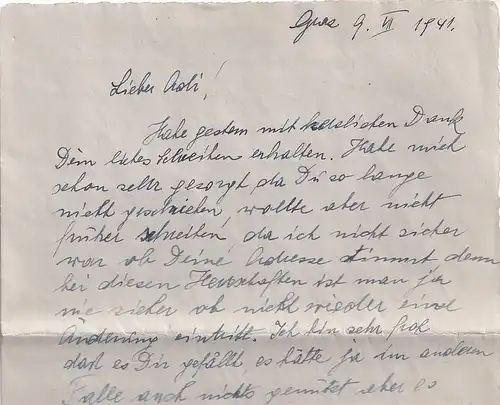 Graz 9. VI 1941.
Lieber Adi!
Habe gestern mit herzlichen Dank
Dein liebes Schreiben erhalten. Habe mich
schon sehr gesorgt, da Du so lange
nicht geschrieben, wollte aber nicht
früher schreiben, da ich nicht sicher
war ob Deine Adresse stimmt denn
bei diesen Herrschaften ist man ja
nie sicher ob nicht wieder eine
Änderung eintritt. Ich bin sehr froh
daß es Dir gefällt, es hätte ja im anderen
Falle auch nichts genützt aber es